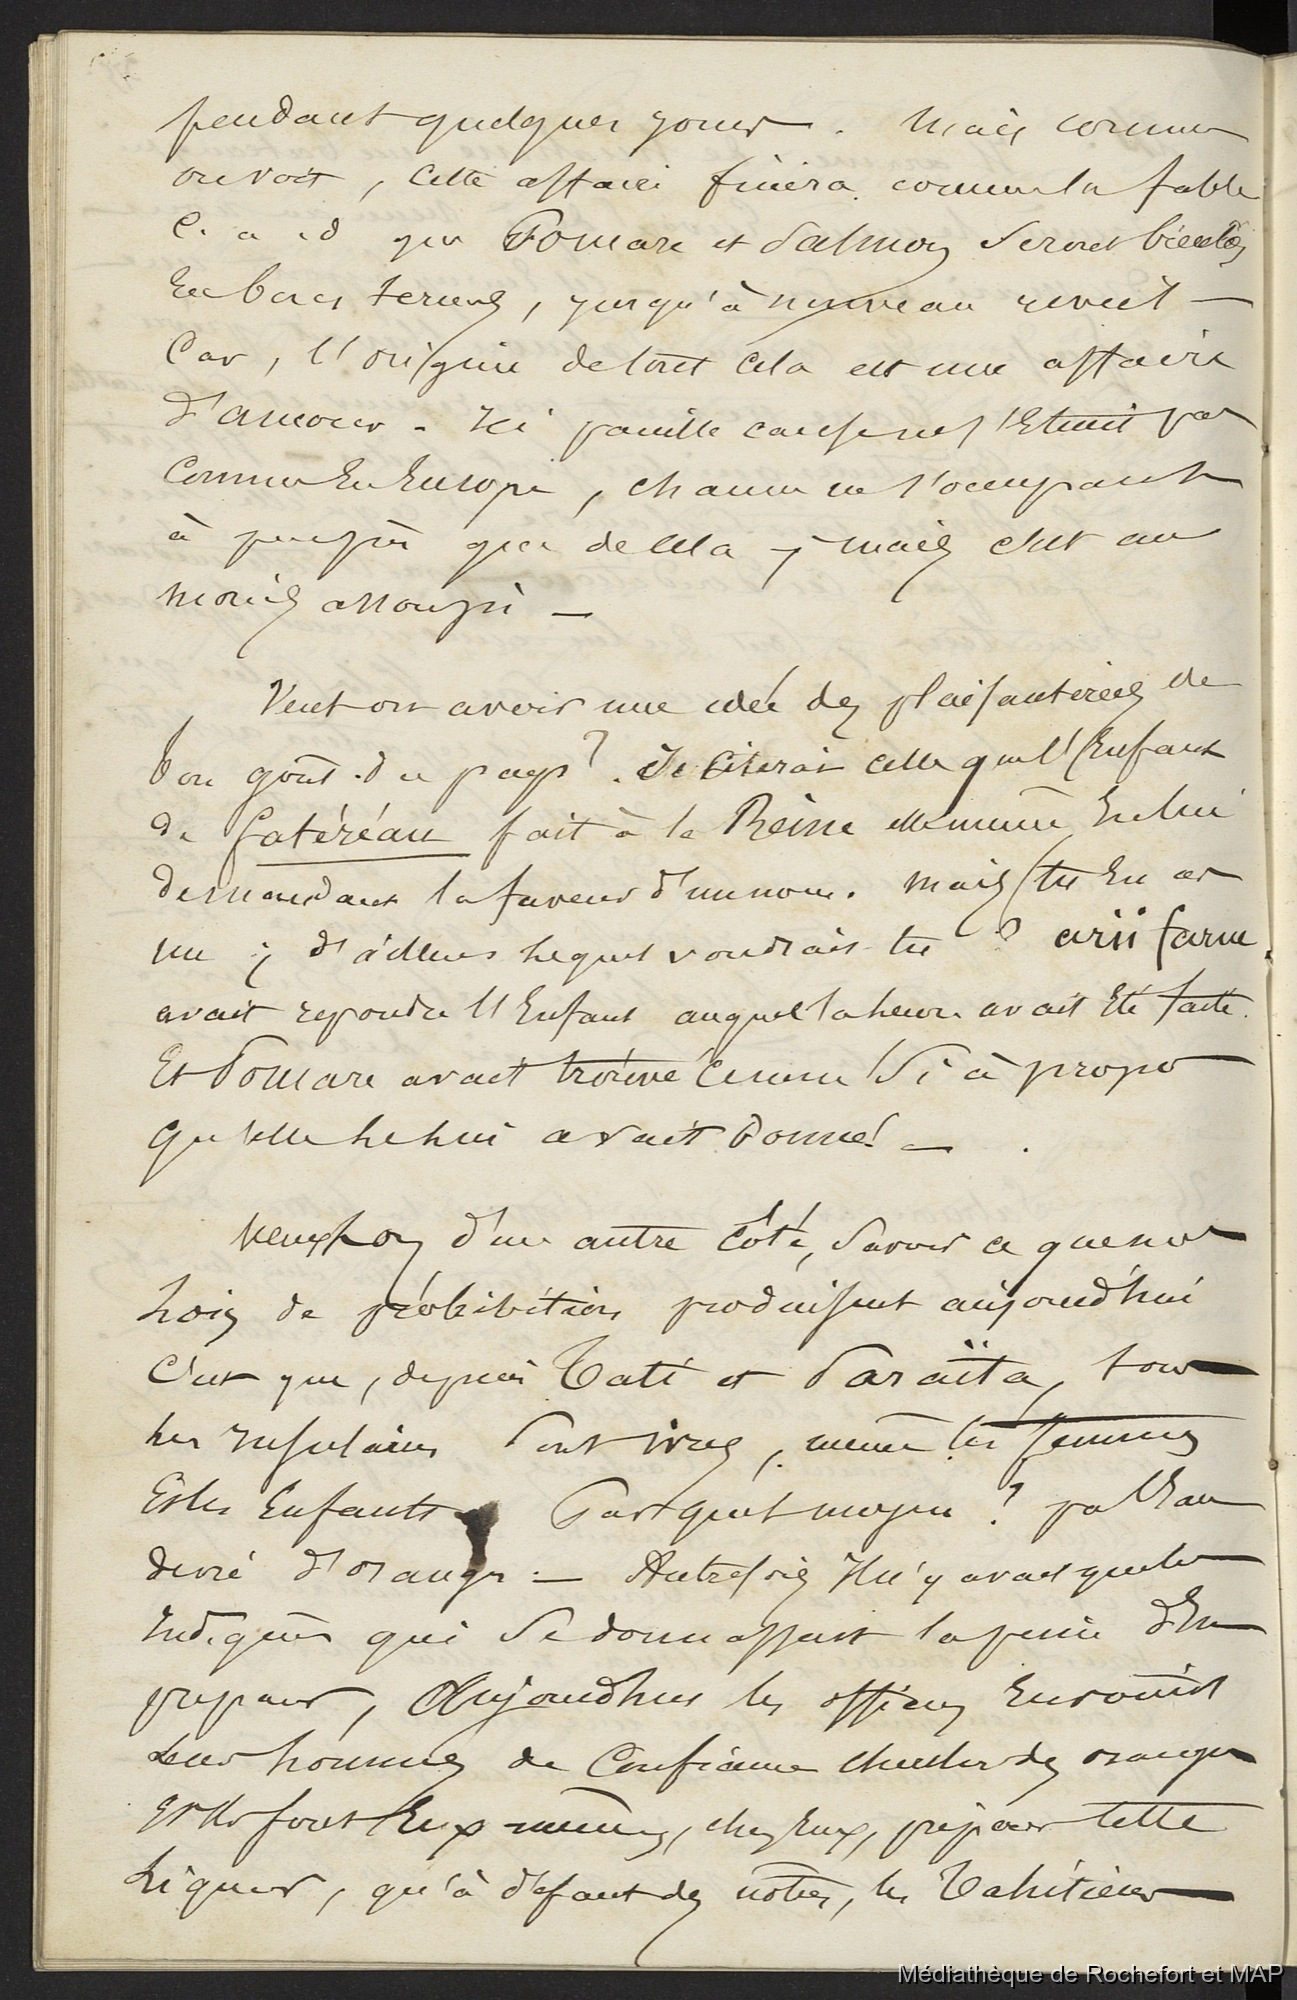 pendant quelques jours. Mais comme
on voit, cette affaire finira comme la fable
C. a. d que Pomare et Salmon seront bientôt
En bons termes, jusqu'à nouveau réveil —
Car, l'origine de tout cela est une affaire
d'amour. Ici pareille cause ne s'éteint pas
Comme En Europe, chacun ne s'occupant
à peu près que de cela; mais c'est au
moins assoupi —
Veut on avoir une idée des plaisanteries de
bon goût du pays? Je citerai celle que l'Enfant
de fatéréau fait à la Reine elle même En lui
demandant la faveur d'un nom. Mais tu En as
un; d'ailleurs lequel voudrais-tu? arii farue.
avait repondu l'Enfant auquel la leçon avait Eté faite.
Et Pomare avait trouvé ce nom si à propos
qu'elle le lui avait donné! —
Veut on d'un autre côté, savoir ce que nos
lois de prohibition produisent aujourd'hui
C'est que, depuis Tati et Paraïta, tous
les Insulaires sont ivres, même les femmes
Et les Enfants. Par quel moyen? par l'Eau
de vie d'orange: — Autrefois il n'y avait que les
Indigènes qui se donnassent la peine d'En
preparer, Aujourd'hui les officiers Envoient
leurs hommes de Confiance chercher des oranges
Et ils font Eux mêmes, chez Eux, préparer cette
liqueur, qu'à défaut des nôtres, les Tahitiens
Médiathèque de Rochefort et MAP